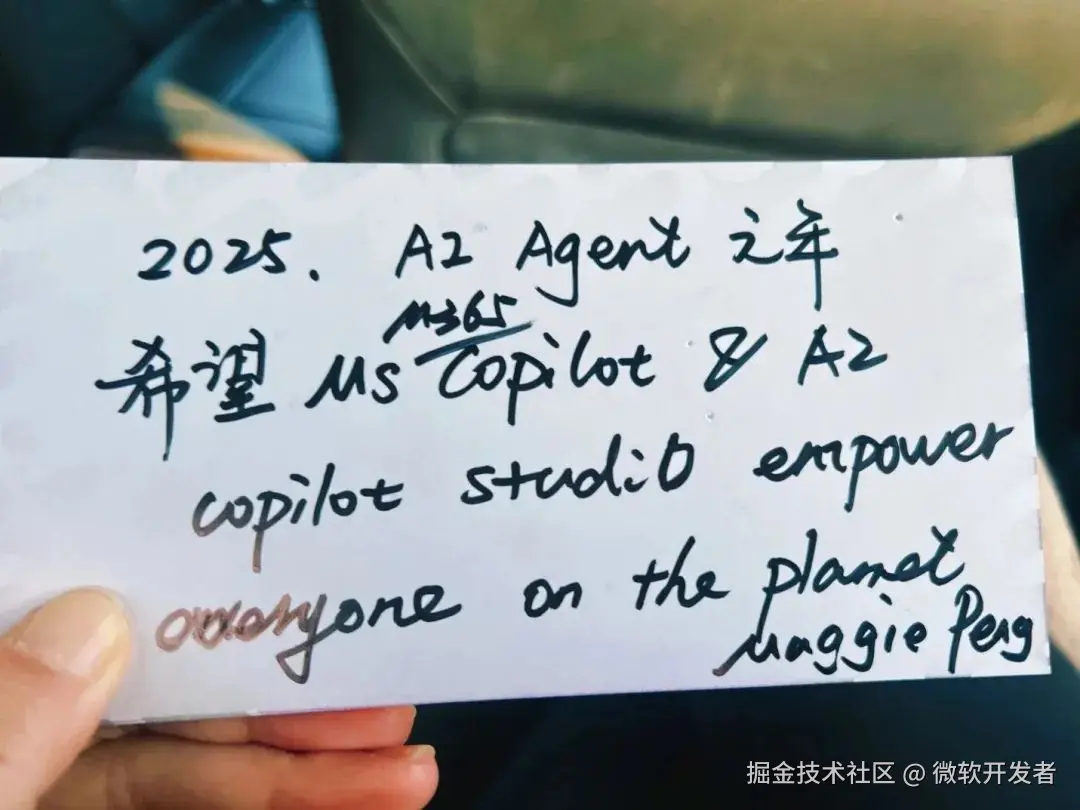 2025. AI Agent 元年
希望 Ms M365 Copilot & AI
copilot studio empower
everyone on the planet
Maggie Peng
掘金技术社区 @ 微软开发者